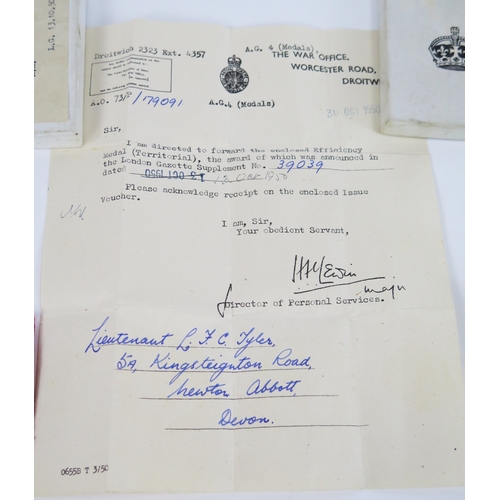 L.G. 13.10.50
Droitwich 2323 Ext. 4357
A.G. 4 (Medals).
THE WAR OFFICE,
WORCESTER ROAD,
DROITW
A.G.4 (Medals)
/179091
Sir,
I am directed to forward the enclosed Efficiency
Medal (Territorial), the award of which was announced in
the London Gazette Supplement No. 39039
dated 13 OCT 1950
Please acknowledge receipt on the enclosed Issue
Voucher.
I am, Sir,
Your obedient Servant,
Director of Personal Services.
Lieutenant L. F. C. Tyler,
5A, Kingsteignton Road,
Newton Abbott,
Devon.
0655B T 3/50